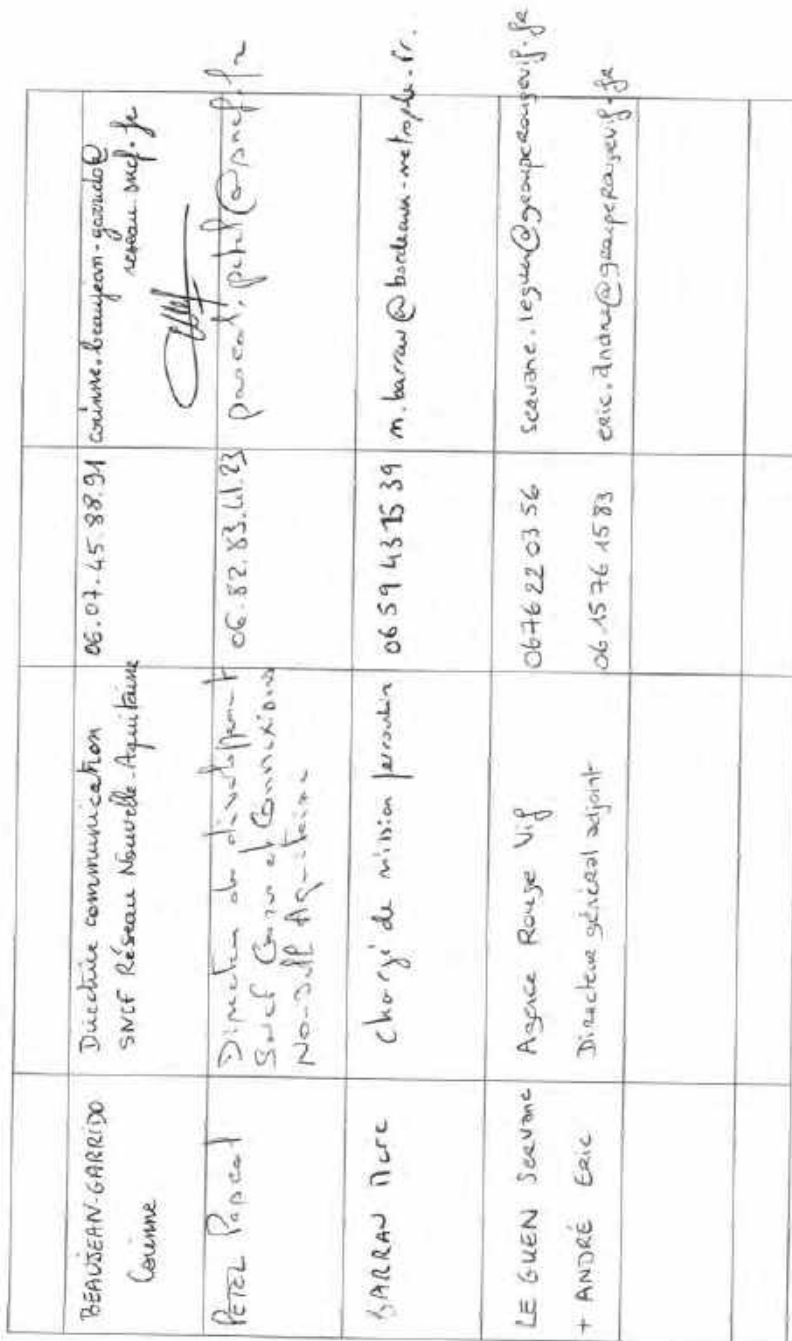 BEAUJEAN-GARRIDO
Corinne
Directrice communication
SNCF Réseau Nouvelle-Aquitaine
06.07.45.88.91
corinne.beaujean-garrido@
reseau.sncf.fr
PETEL Pascal
Directeur du développement
Sncf Gares et Connexions
Nouvelle Aquitaine
06.82.83.41.23
pascal.petel@sncf.fr
BARRAU Marc
Chargé de mission
06 59 43 75 39
m.barrau@bordeaux-metropole.fr.
LE GUEN Servane
+ ANDRÉ Eric
Agence Rouge Vif
Directeur général adjoint
06 76 22 03 56
06 15 76 15 83
servane.leguen@grouperougevif.fr
eric.andre@grouperougevif.fr